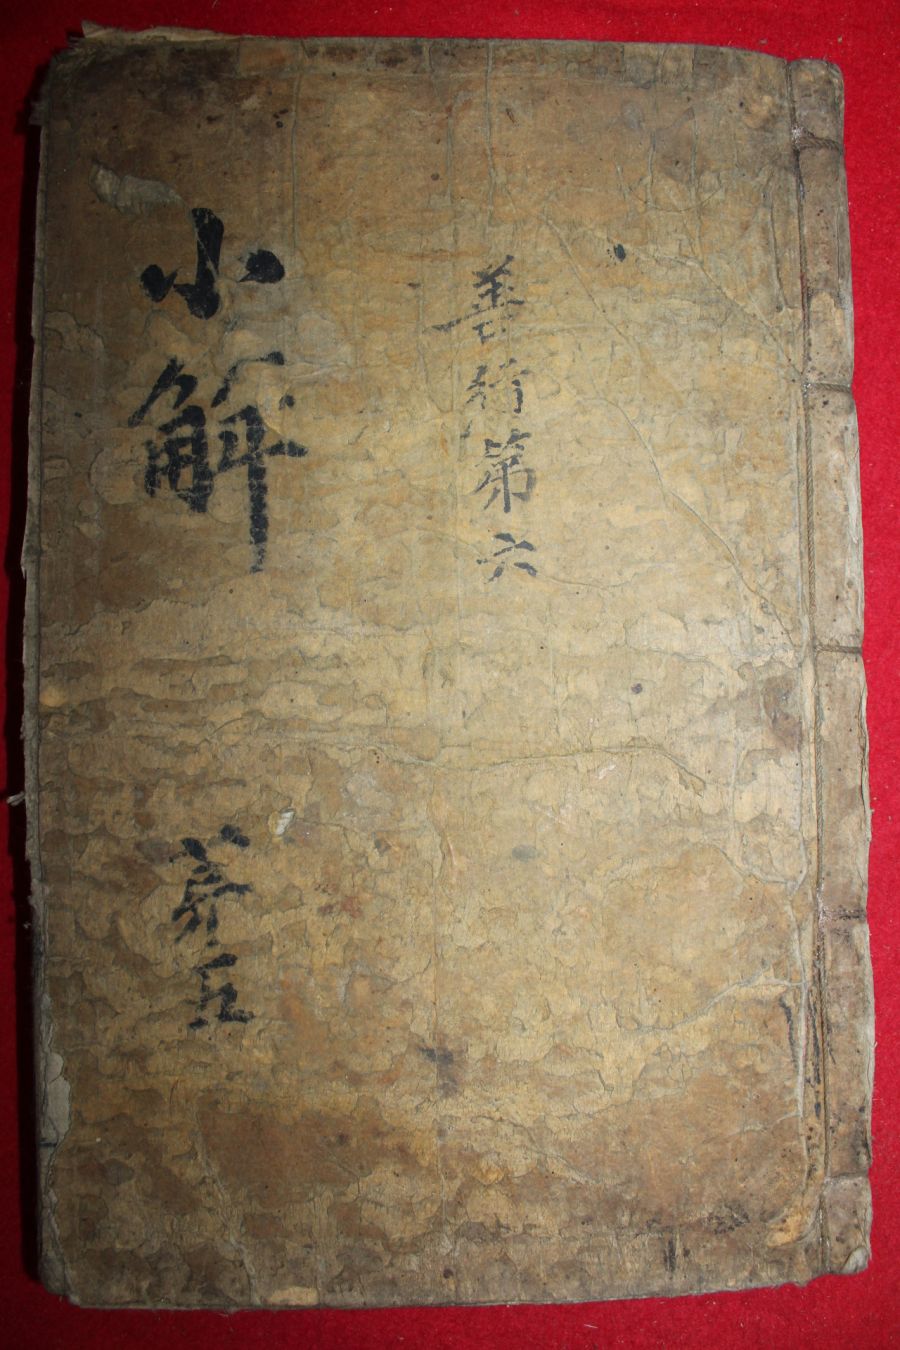 善行第六
小解
五